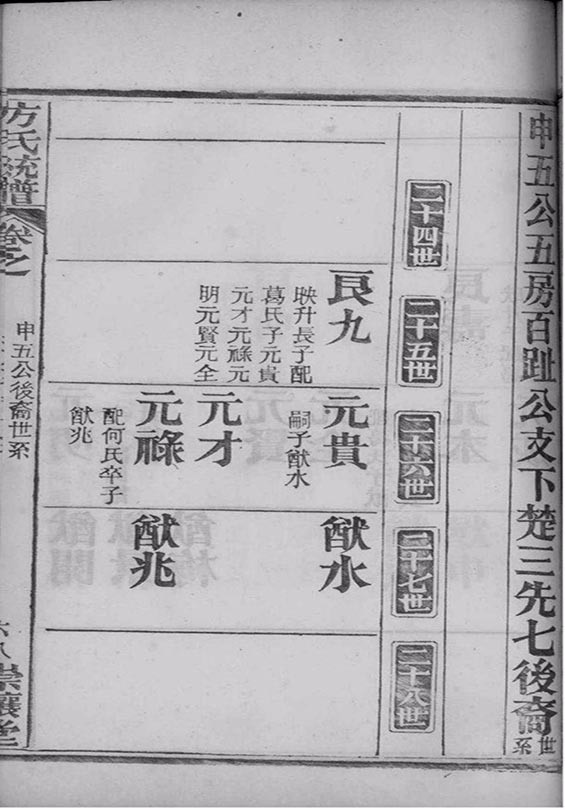 申五公五房百趾公支下楚三先七後裔世系
二十四世
二十五世
二十六世
二十七世
二十八世
良九
映升長子配
葛氏子元貴
元才元祿元
明元賢元全
元貴
嗣子猷水
元才
元祿
配何氏卒子
猷兆
猷水
猷兆
方氏統譜
卷之
申五公後裔世系
六八